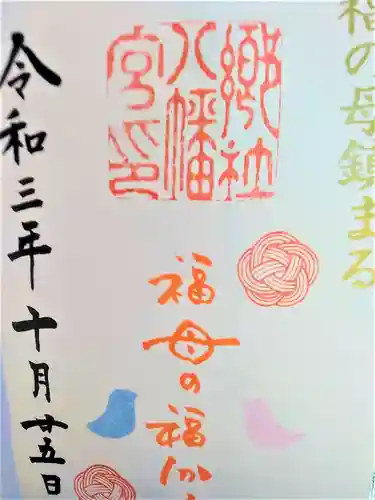 福の母鎮まる
郷社
八幡
宮印
福母の福分
令和三年十月廿五日